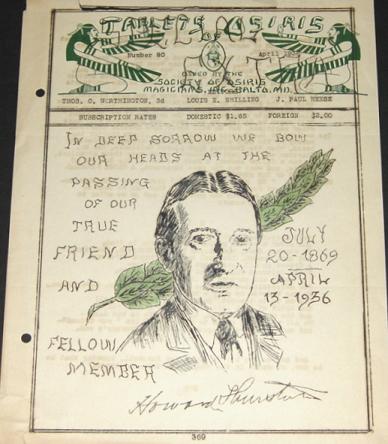 TABLETS OF OSIRIS
Number 80
April
ISSUED BY THE
SOCIETY OF OSIRIS
MAGICIANS, INC. BALTO. MD.
THOS. C. WORTHINGTON, 3d LOUIS E. SHILLING J. PAUL
SUBSCRIPTION RATES DOMESTIC $1.65 FOREIGN $2.00
IN DEEP SORROW WE BOW
OUR HEADS AT THE
PASSING
OF OUR
TRUE
FRIEND
AND
FELLOW
MEMBER
JULY
20-1869
APRIL
13-1936
Howard Thurston
369